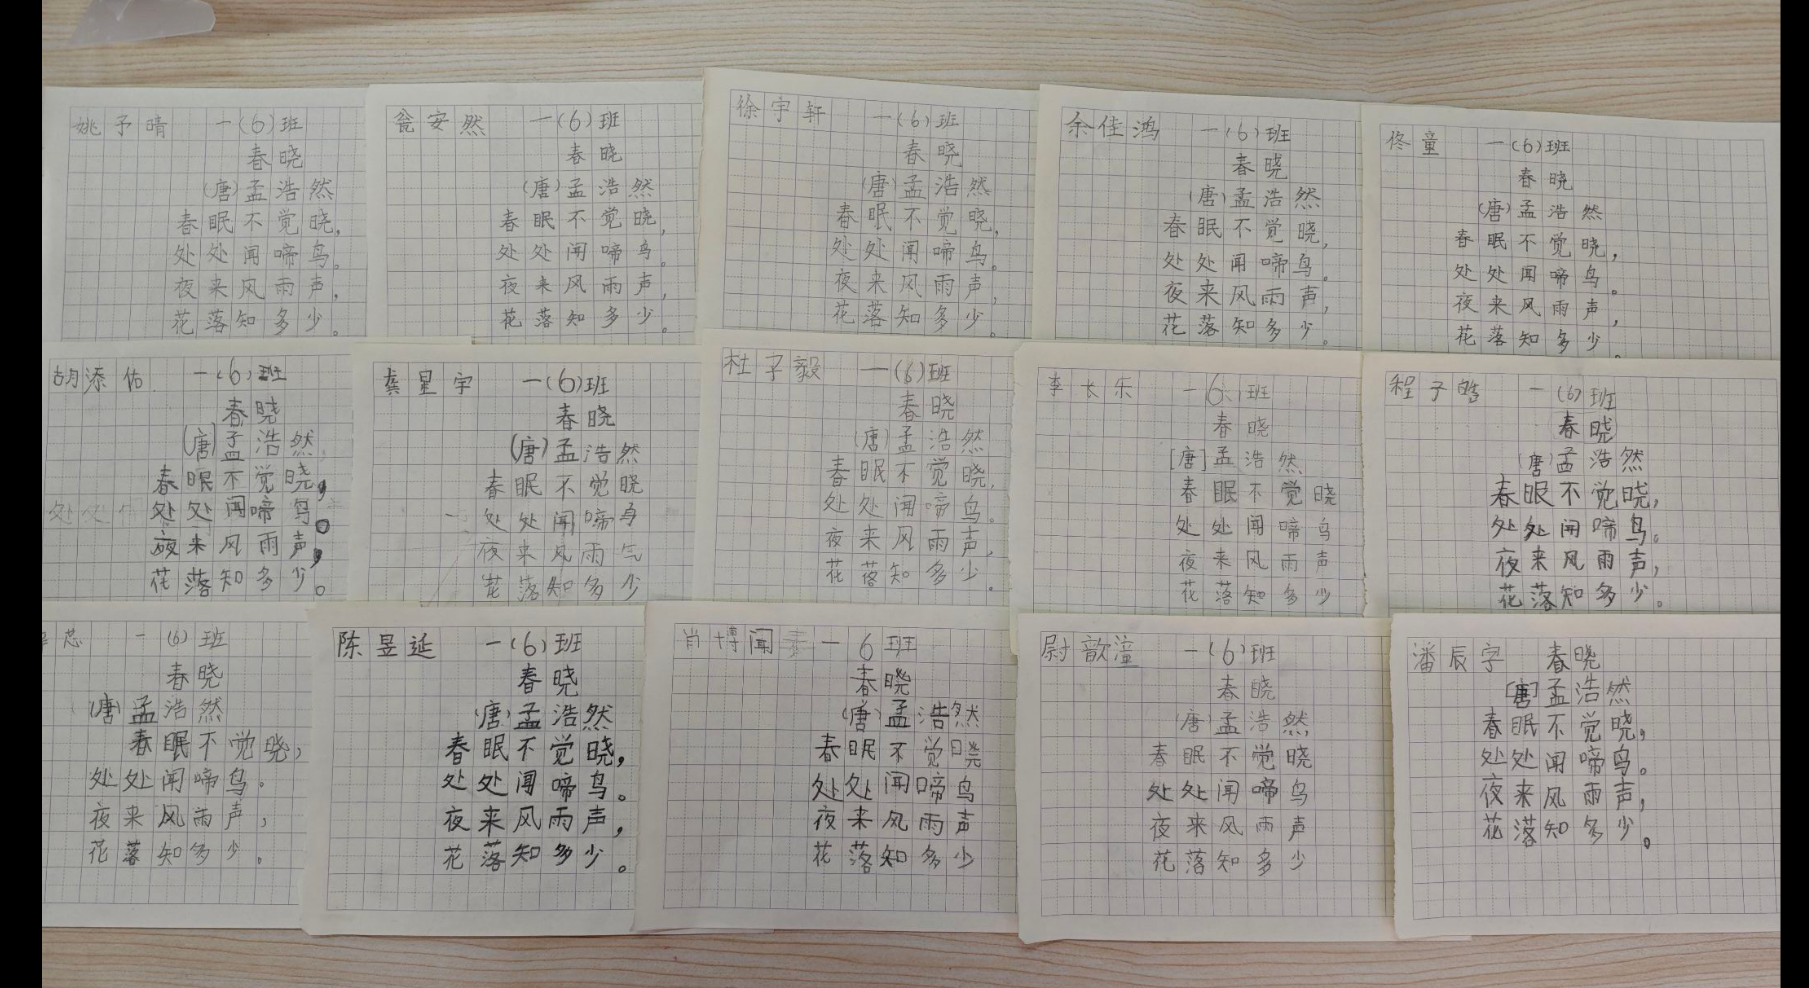 姚予晴 一(6)班
春晓
(唐)孟浩然
春眠不觉晓,
处处闻啼鸟。
夜来风雨声,
花落知多少。
瓮安然 一(6)班
春晓
(唐)孟浩然
春眠不觉晓,
处处闻啼鸟。
夜来风雨声,
花落知多少。
徐宇轩 一(6)班
春晓
(唐)孟浩然
春眠不觉晓,
处处闻啼鸟。
夜来风雨声,
花落知多少。
余佳鸿 一(6)班
春晓
(唐)孟浩然
春眠不觉晓,
处处闻啼鸟。
夜来风雨声,
花落知多少。
佟童 一(6)班
春晓
(唐)孟浩然
春眠不觉晓,
处处闻啼鸟。
夜来风雨声,
花落知多少。
胡添佑 一(6)班
春晓
(唐)孟浩然
春眠不觉晓,
处处闻啼鸟。
夜来风雨声,
花落知多少。
龚星宇 一(6)班
春晓
(唐)孟浩然
春眠不觉晓
处处闻啼鸟
夜来风雨
花落知多少
杜子毅 一(6)班
春晓
(唐)孟浩然
春眠不觉晓,
处处闻啼鸟。
夜来风雨声,
花落知多少。
李长乐 一6班
春晓
[唐]孟浩然
春眠不觉晓
处处闻啼鸟
夜来风雨声
花落知多少
程子皓 一(6)班
春晓
(唐)孟浩然
春眠不觉晓,
处处闻啼鸟。
夜来风雨声,
花落知多少。
芯 一(6)班
春晓
(唐)孟浩然
春眠不觉晓,
处处闻啼鸟。
夜来风雨声,
花落知多少。
陈昱延 一(6)班
春晓
(唐)孟浩然
春眠不觉晓,
处处闻啼鸟。
夜来风雨声,
花落知多少。
肖博闻 一6班
春晓
(唐)孟浩然
春眠不觉晓
处处闻啼鸟
夜来风雨声
花落知多少
尉歆滢 一(6)班
春晓
(唐)孟浩然
春眠不觉晓
处处闻啼鸟
夜来风雨声
花落知多少
潘辰宇 春晓
[唐]孟浩然
春眠不觉晓,
处处闻啼鸟。
夜来风雨声,
花落知多少。